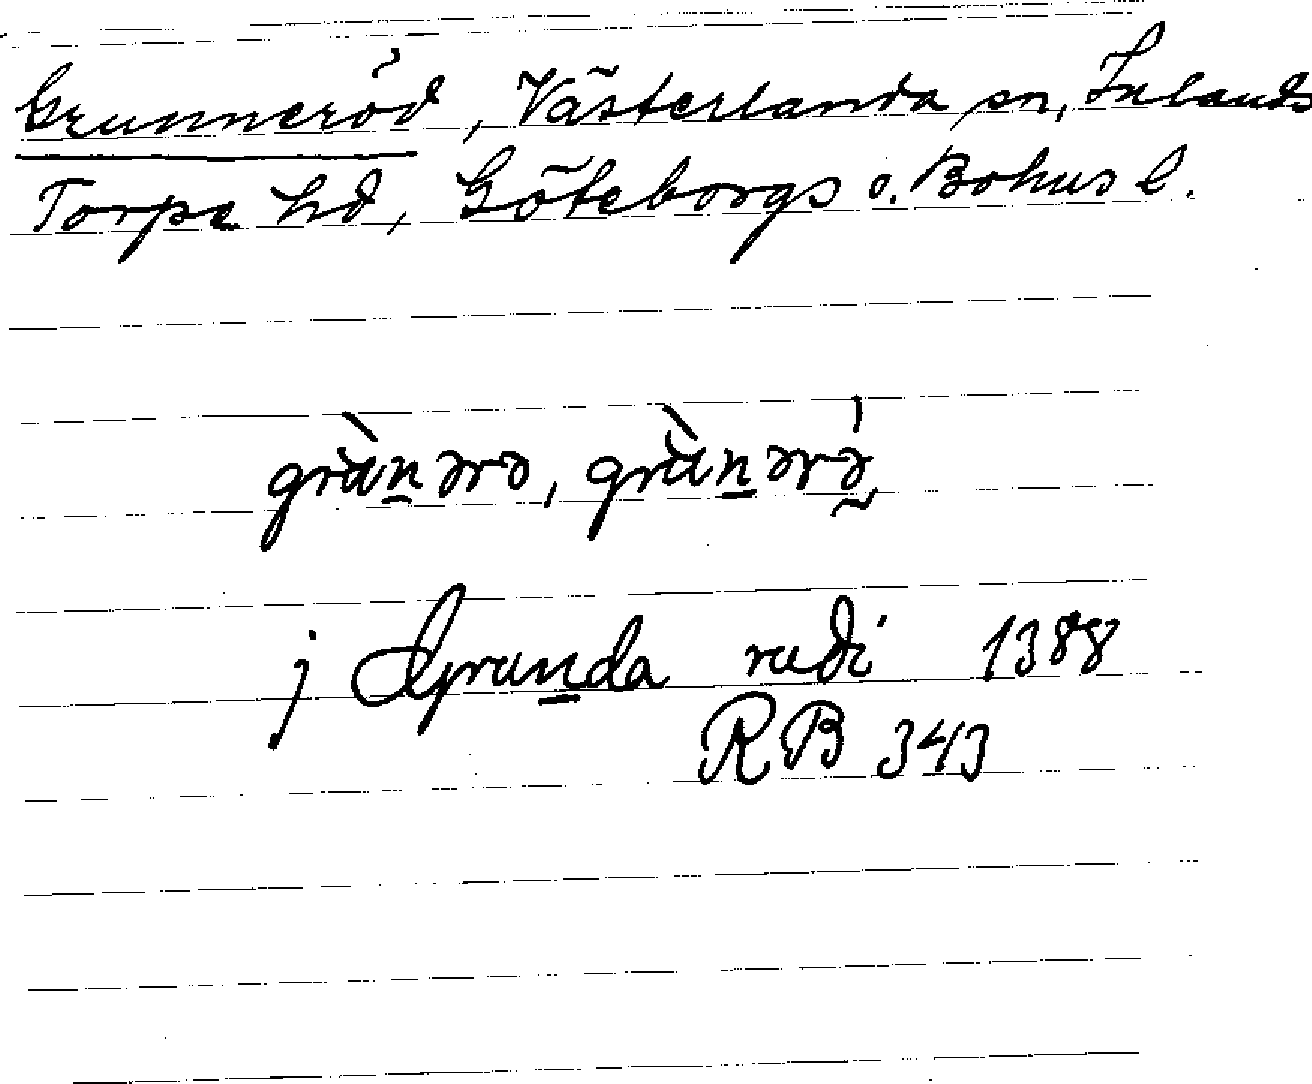 Grunneröd, Västerlanda sn, Inlands
Torpe hd, Göteborgs o. Bohus l.
grànərə, grànərə̀
j Grunda rudi 1388
RB 343